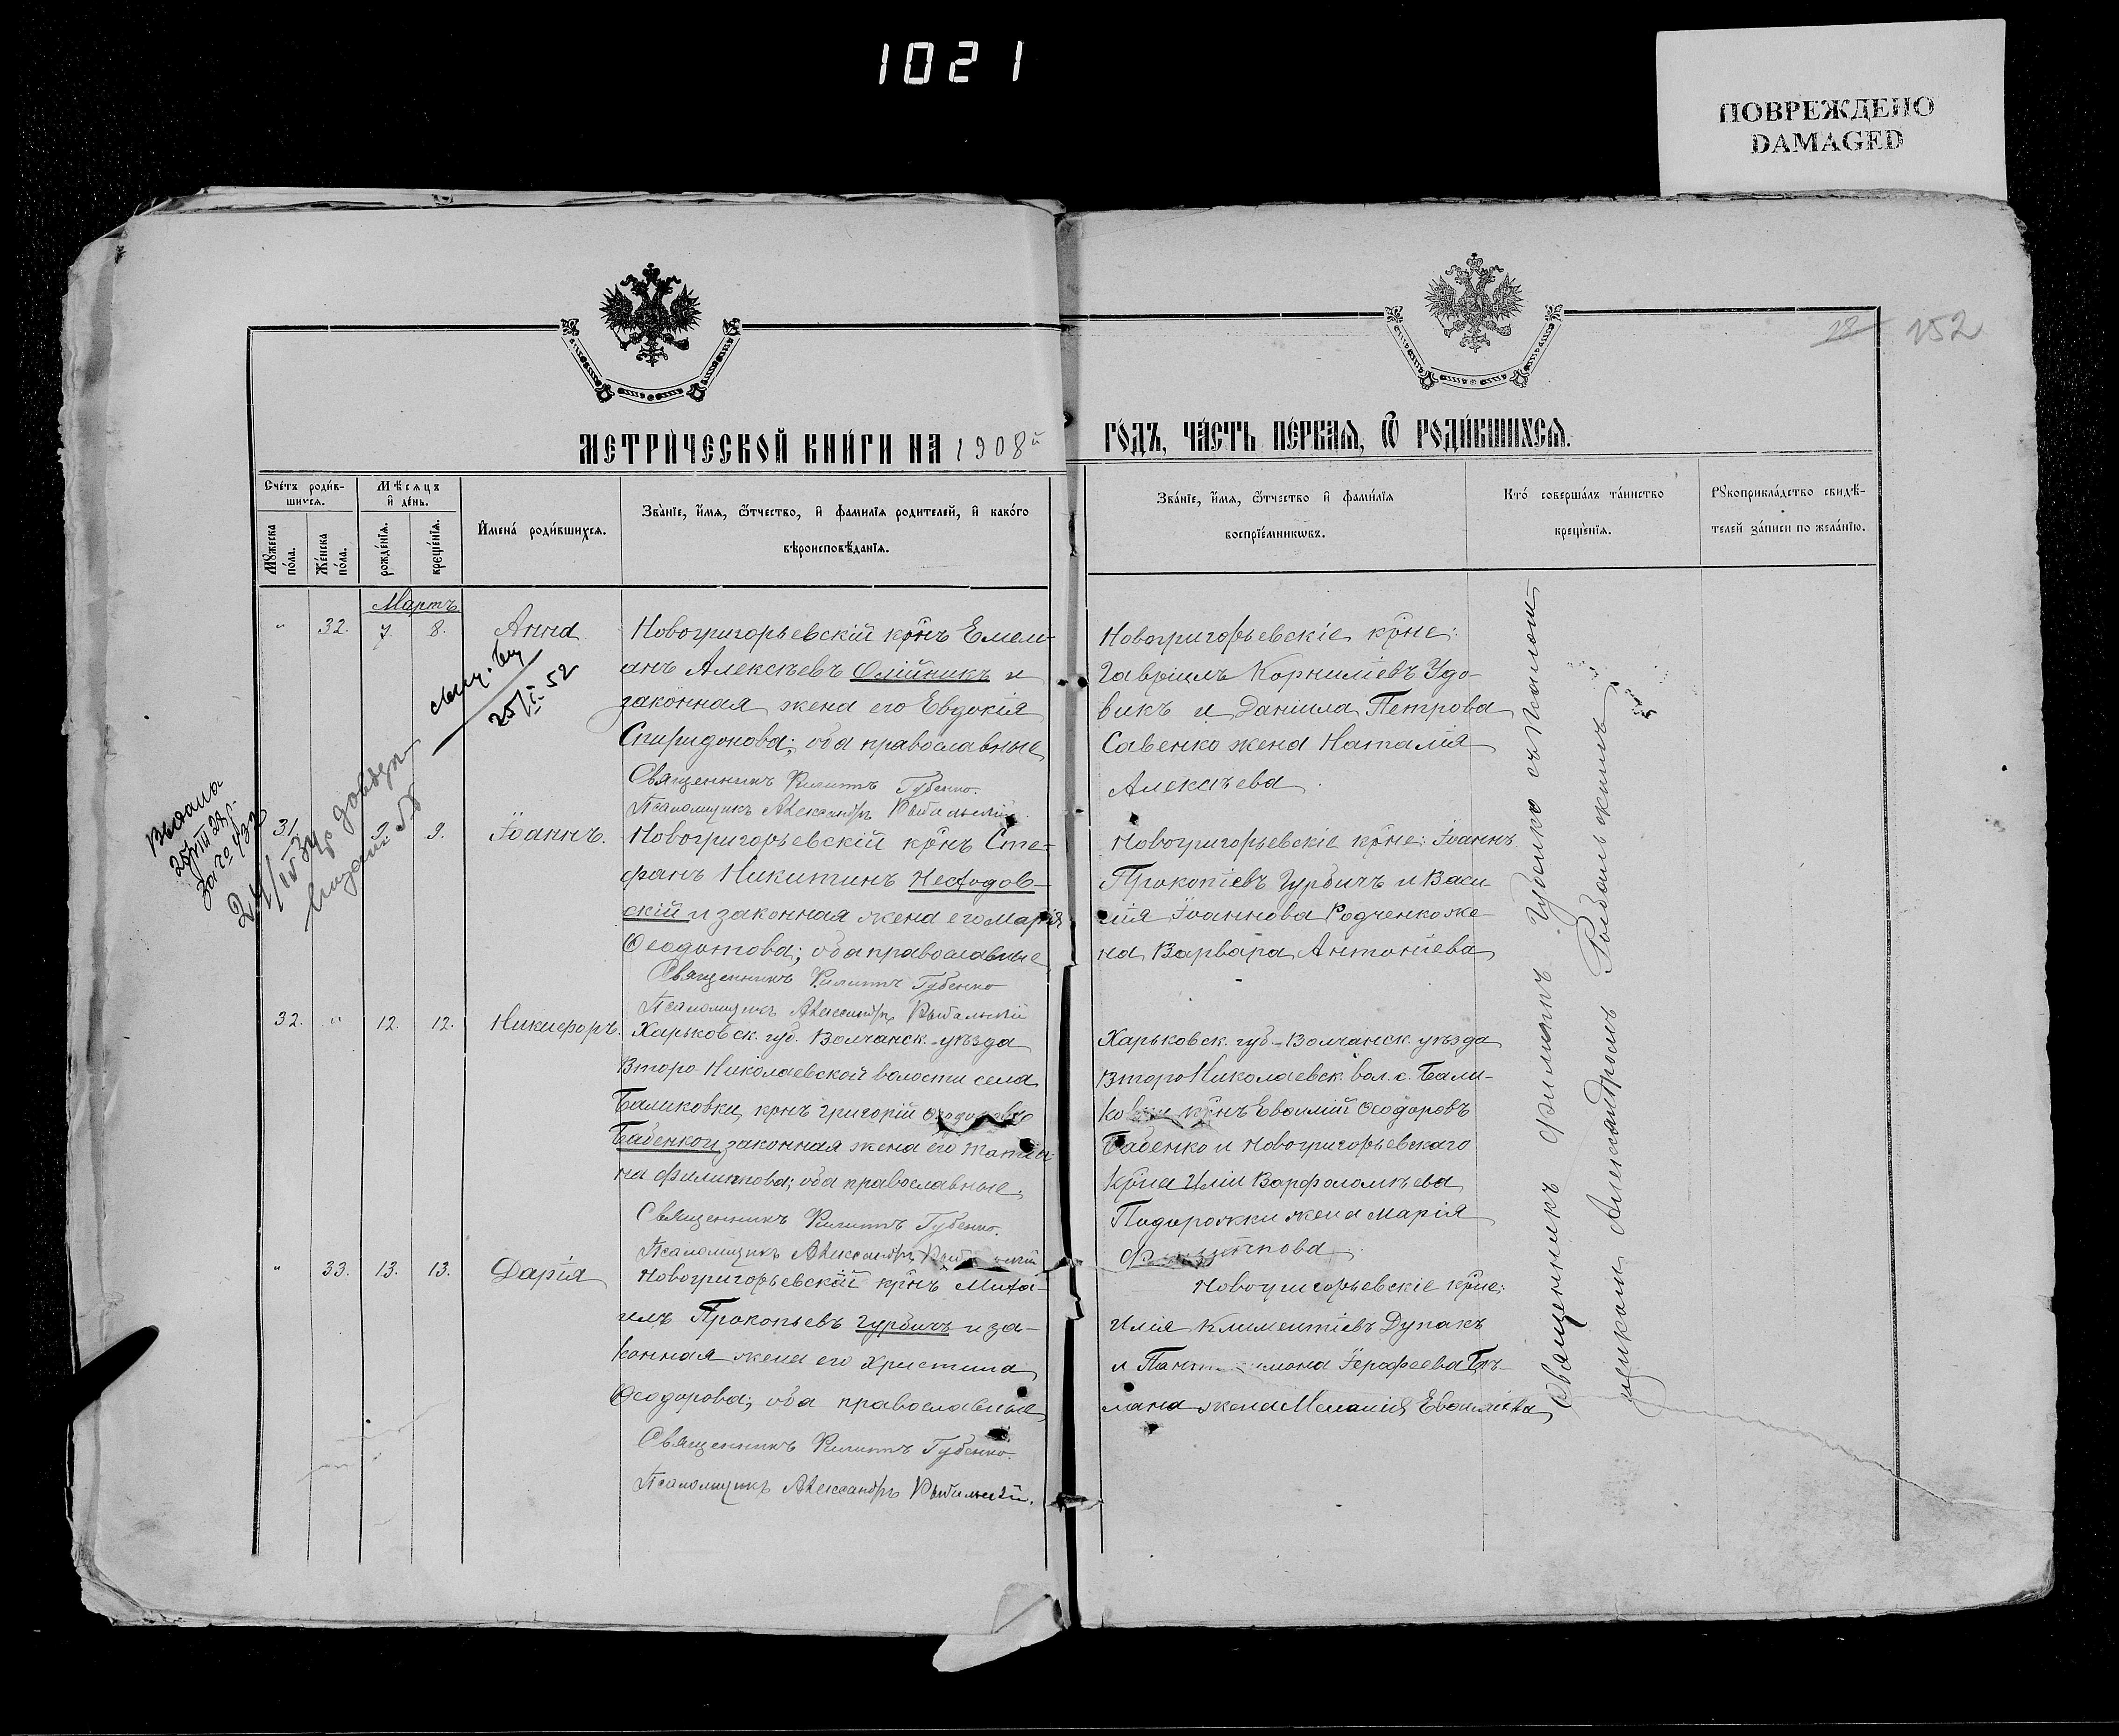 1021
ПОВРЕЖДЕНО
DAMAGED
18 152
МЕТРИ́ЧЕСКОЙ КНИ́ГИ НА 1908й ГО́ДЪ, ЧА́СТЬ ПЕ́РВАЯ, Ѡ РОДИ́ВШИХСЯ.
Сче́тъ роди́в-
шихся.
Мѣ́сяцъ
и де́нь.
Му́жеска
по́ла.
Же́нска
по́ла.
рожде́нїя.
креще́нїя.
Имена́ роди́вшихся.
Зва́нїе, и́мя, ѻ́тчество, и фами́лїя родителей, и како́го
вѣроисповѣ́данїя.
Зва́нїе, и́мя, ѻ́тчество и фами́лїя
воспрїе́мникѡвъ.
Кто́ соверша́лъ та́инство
креще́нїя.
Рꙋкоприкла́дство свидѣ́-
телей за́писи по жела́нїю.
Мартъ
" 32. 7. 8. Анна
Новогригорьевскій крнъ Емелі-
анъ Алексѣевъ Олійникъ и
законная жена его Евдокія
Спиридонова; оба православные
Священникъ Филиппъ Губенко.
Псаломщикъ Александръ Рыбальскій.
Новогригорьевскіе крне:
Гавріилъ Корниліевъ Удо-
викъ и Даніила Петрова
Савенко жена Наталія
Алексѣева.
25/II 52
31. 9. 9. Іоаннъ.
Новогригорьевскій крнъ Сте-
фанъ Никитинъ Неходов-
скій и законная жена его Марія
Ѳеодотова; оба православные
Священникъ Филиппъ Губенко
Псаломщикъ Александръ Рыбальскій
Новогригорьевскіе крне: Іоаннъ
Прокопіевъ Гурбичъ и Васи-
лія Іоаннова Родченко же-
на Варвара Антоніева
32. " 12. 12. Никифоръ.
Харьковск. губ. Волчанск. уѣзда
Второ-Николаевской волости села
Баликовки, крнъ Григорій Ѳеодоровъ
Бабенко и законная жена его Татія-
на Филиппова; оба православные,
Священникъ Филиппъ Губенко.
Псаломщикъ Александръ Рыбальскій
Харьковск. губ. Волчанск. уѣзда
Второ Николаевск. вол. с. Бали-
ковки крнъ Евѳимій Ѳеодоровъ
Бабенко и Новогригорьевскаго
крна Иліи Варфоломѣева
Подорожки жена Марія
Филиппова.
" 33. 13. 13. Дарія
Новогригорьевскій крнъ Миха-
илъ Прокопьевъ Гурбичъ и за-
конная жена его Христина
Ѳеодорова; оба православные,
Священникъ Филиппъ Губенко.
Псаломщикъ Александръ Рыбальскій.
Новогригорьевскіе крне:
Илія Климентіевъ Дупакъ
и Пантелеимона Іерофеева Бѣ-
лана жена Меланія Евѳиміева
Священникъ Филиппъ Губенко съ Псалом-
щикомъ Александромъ Рыбальскимъ